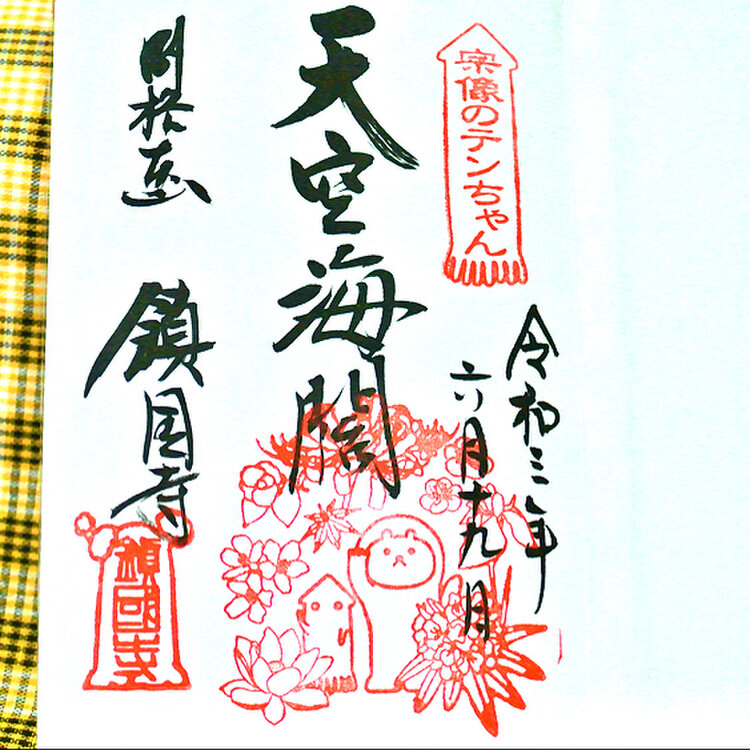 宗像のテンちゃん
令和三年
六月十九日
天空海闊
別格本山
鎮国寺
鎮國寺